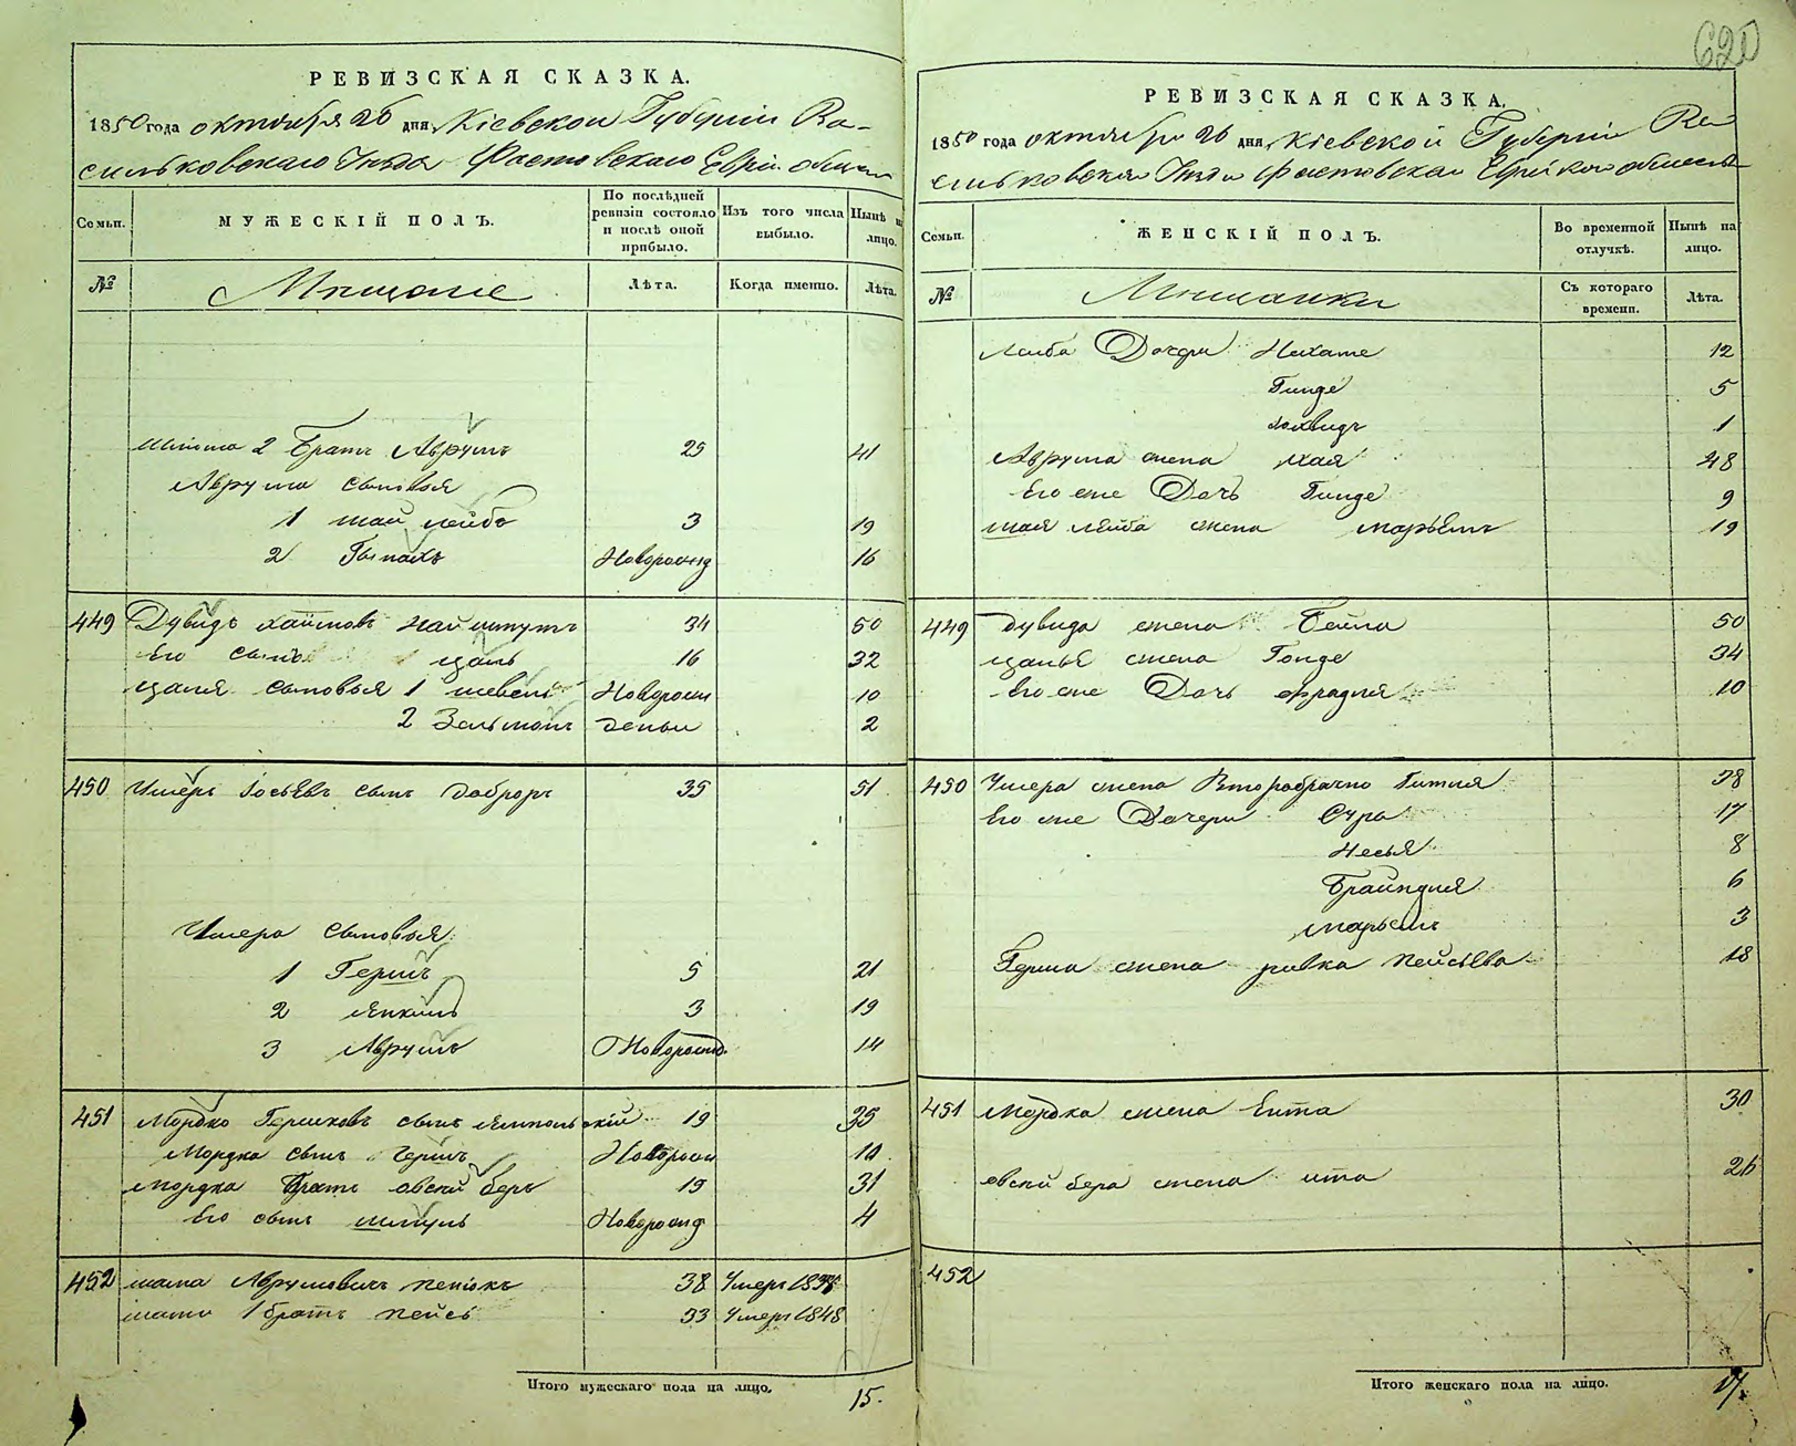 620
РЕВИЗСКАЯ СКАЗКА.
1850 года октября 26 дня, Кіевской Губерніи Ва-
сильковскаго Уѣзда Фастовскаго Еврей. общест
Семьи.
МУЖЕСКІЙ ПОЛЪ.
По послѣдней ревизіи состояло и послѣ оной прибыло.
Изъ того числа выбыло.
Нынѣ на лицо.
№
Мѣщане
Лѣта.
Когда именно.
Лѣта.
2 Братъ Аврумъ 25 41
Аврума сыновья
1 Шай Лейба 3 19
2 Новорожд 16
449 Дувидъ Хаймовъ 34 50
Его сынъ Цаль 16 32
Цаля сыновья 1 Новорож 10
2 Зельманъ деный 2
450 Умеръ Іосьевъ сынъ 35 51
сыновья
1 Гершъ 5 21
2 Янкель 3 19
3 Аврумъ Новорожд. 14
451 Мордко Гершковъ сынъ Ямпольскій 19 35
Мордка сынъ Гершъ Новорож 10
Мордка братъ Овсей Беръ 15 31
Его сынъ Шмуль Новорожд 4
452 Аврумовичъ 38 Умеръ
1 братъ Пейсь 33 Умеръ 1848
Итого мужескаго пола на лицо. 15.
РЕВИЗСКАЯ СКАЗКА.
1850 года октября 26 дня, Кіевской Губерніи Ва
сильковскаго Уѣзда Фастовскаго Еврейскаго общест
Семьи.
ЖЕНСКІЙ ПОЛЪ.
Во временной отлучкѣ.
Нынѣ на лицо.
№
Мѣщанки
Съ котораго времени.
Лѣта.
Лейба Дочери Нехаме 12
Гинде 5
1
Аврума жена Хая 48
Его же Дочь Гинде 9
Шая Лейба жена Марьемъ 19
449 Дувида жена Бейла 50
Цалья жена 34
Его же Дочь Фрадля 10
450 жена Второбрачно Гитля 38
Его же Дочери Сура 17
Несья 8
Брайндля 6
Марьемъ 3
Герша жена Ривка Пейсьева 18
451 Мордка жена Ента 30
Овсей Бера жена Ита 26
452
Итого женскаго пола на лицо. 17.